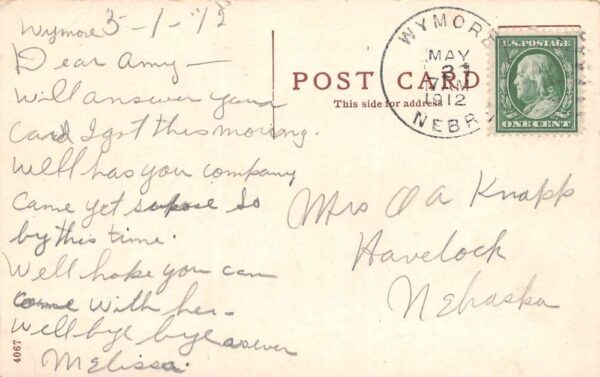 Wymore 5-1-12
Dear Amy—
Will answer your
Card I got this morning.
Well has you company
Came yet supose so
by this time.
Well hope you can
come with her.
Well bye bye
Melissa.
4067
POST CARD
This side for address
WYMORE
MAY
2
7AM
1912
NEBR
U.S. POSTAGE
ONE CENT
Mrs O A Knapp
Havelock
Nebraska